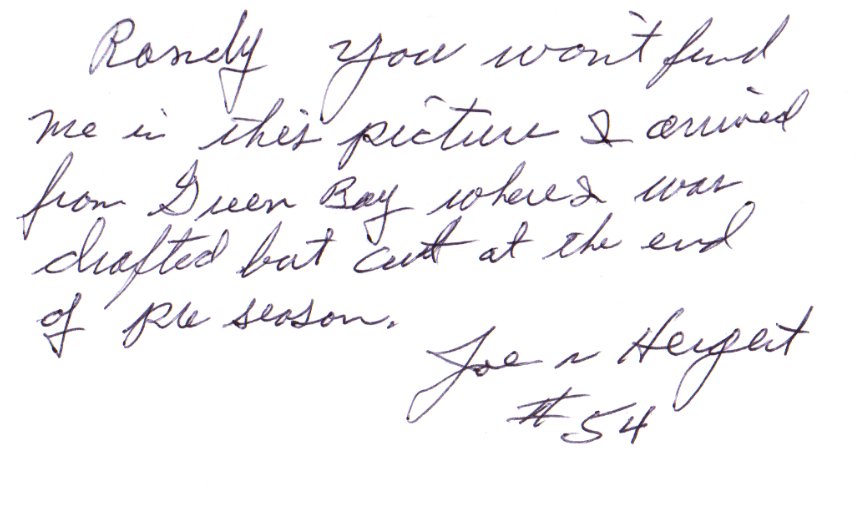 Randy you won't find
me in this picture I arrived
from Green Bay where I was
drafted but cut at the end
of pre season.
Joe n Hergert
#54